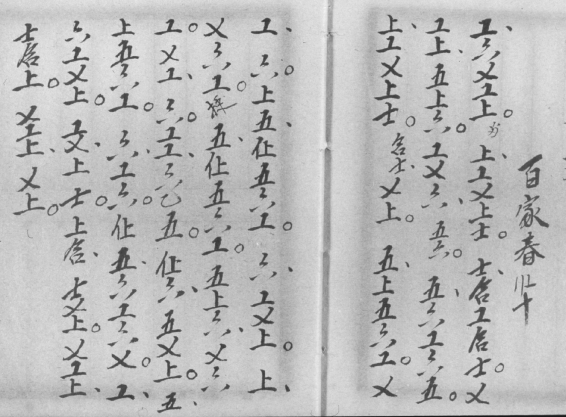 百家春
工六乂工上。上工乂上士。士合工合士。乂
工上五上六。工乂六五六。五六工六五。
上工乂上士。合士乂上。五上五六工。乂
工六。上五仩五六工。六工乂上。上
乂六工五仩五六工。五上六乂六
工。乂工六工工六五。仩六五乂上。五
上五六工。六工六仩五六工六乂。工
六工乂上。工乂上士。上合士乂上。乂工上
士合上。乂工上乂上。